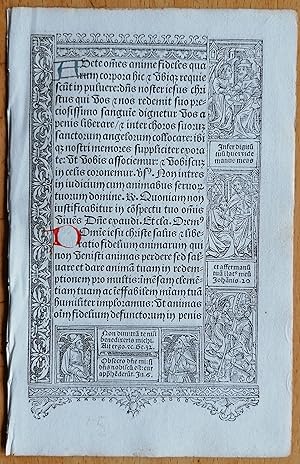 Avete omnes anime fideles qua
rum corpora hic & ubique requie
scut in pulvere: dns noster iesus chri
stus qui vos & nos redemit suo pre
ciosissimo sanguine dignetur vos a
penis liberare/ & inter choros suoru
sanctorum angelorum collocare: ib
qz nostri memores suppliciter exora
te: Ut vobis associemur: & vobiscu
in celis coronemur. vs. Non intres
in iudicium cum animabus servor
tuorum domine. R. Quoniam non
iustificabitur in cospectu tuo omis
vives Dne exaudi. Et cla. Orem
Domine iesu christe salus & libe
ratio fidelium animarum qui
non venisti animas perdere sed sal
vare et dare animam tuam in redem
ptionem pro multis: imesam clemen
tiam tuam et ieffabilem miam tuam
humiliter imploramus: Ut animas
oim fidelium defunctorum in penis
Infer digitu
tuu huc: et vide
manus meas
et affer manu
tua in latus meu
Johanis. 20
Non dimittam te nisi
benedixeris michi.
Ait ergo. &c. Ge. 32.
Obsecro dne mi: si
dns nobiscu est: cur
apphederut. Ju. 6.